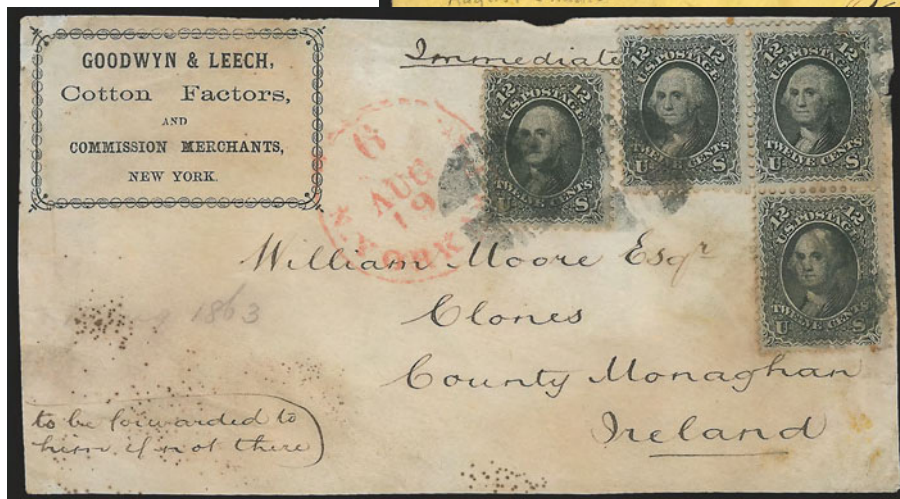 GOODWYN & LEECH,
Cotton Factors,
AND
COMMISSION MERCHANTS,
NEW YORK.
Immediate
12 12
U.S. POSTAGE
TWELVE CENTS
U S
12 12
U.S. POSTAGE
TWELVE CENTS
U S
12 12
U.S. POSTAGE
TWELVE CENTS
U S
12 12
U.S. POSTAGE
TWELVE CENTS
U S
6
AUG
19
N YORK
William Moore Esqr
Clones
County Monaghan
Ireland
1863
to be forwarded to
him if not there